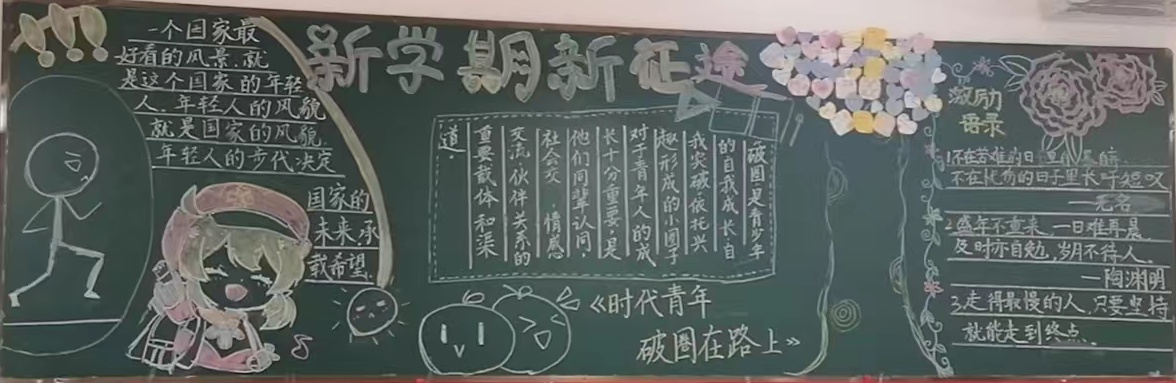 一个国家最
好看的风景,就
是这个国家的年轻
人。年轻人的风貌
就是国家的风貌,
年轻人的步伐决定
国家的
未来,承
载希望.
新学期新征途
破圈是青少年
的自我成长自
我突破依托兴
趣形成的小圈子
对于青年人的成
长十分重要,是
他们同辈认同,
社会交 、情感
交流、伙伴关系的
重要载体和渠
道.
《时代青年
破圈在路上》
激励
语录
1.不在苦难的日
不在忧伤的日子里长吁短叹
——无名
2.盛年不重来,一日难再晨.
及时亦自勉,岁月不待人.
——陶渊明
3.走得最慢的人,只要坚持
就能走到终点.